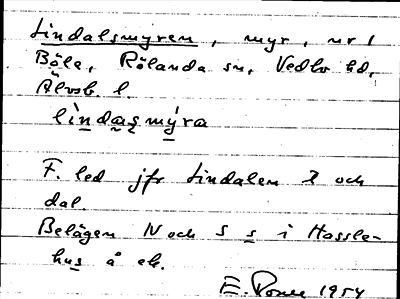 Lindalsmyren, myr, nr 1
Böle, Rölanda sn, Vedbo hd,
Älvsb. l.
lìndasmy̍ra
F. led jfr Lindalen 2 och
dal.
Belägen N och S s i Hassle-
hus å ek.
E. 1954